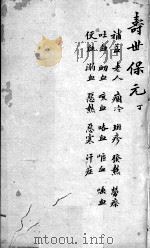 壽世保元 丁
補益 老人 痼冷 斑疹 發熱 勞瘵
吐血 衄血 咳血 咯血 唾血 嗽血
便血 溺血 惡熱 惡寒 汗症